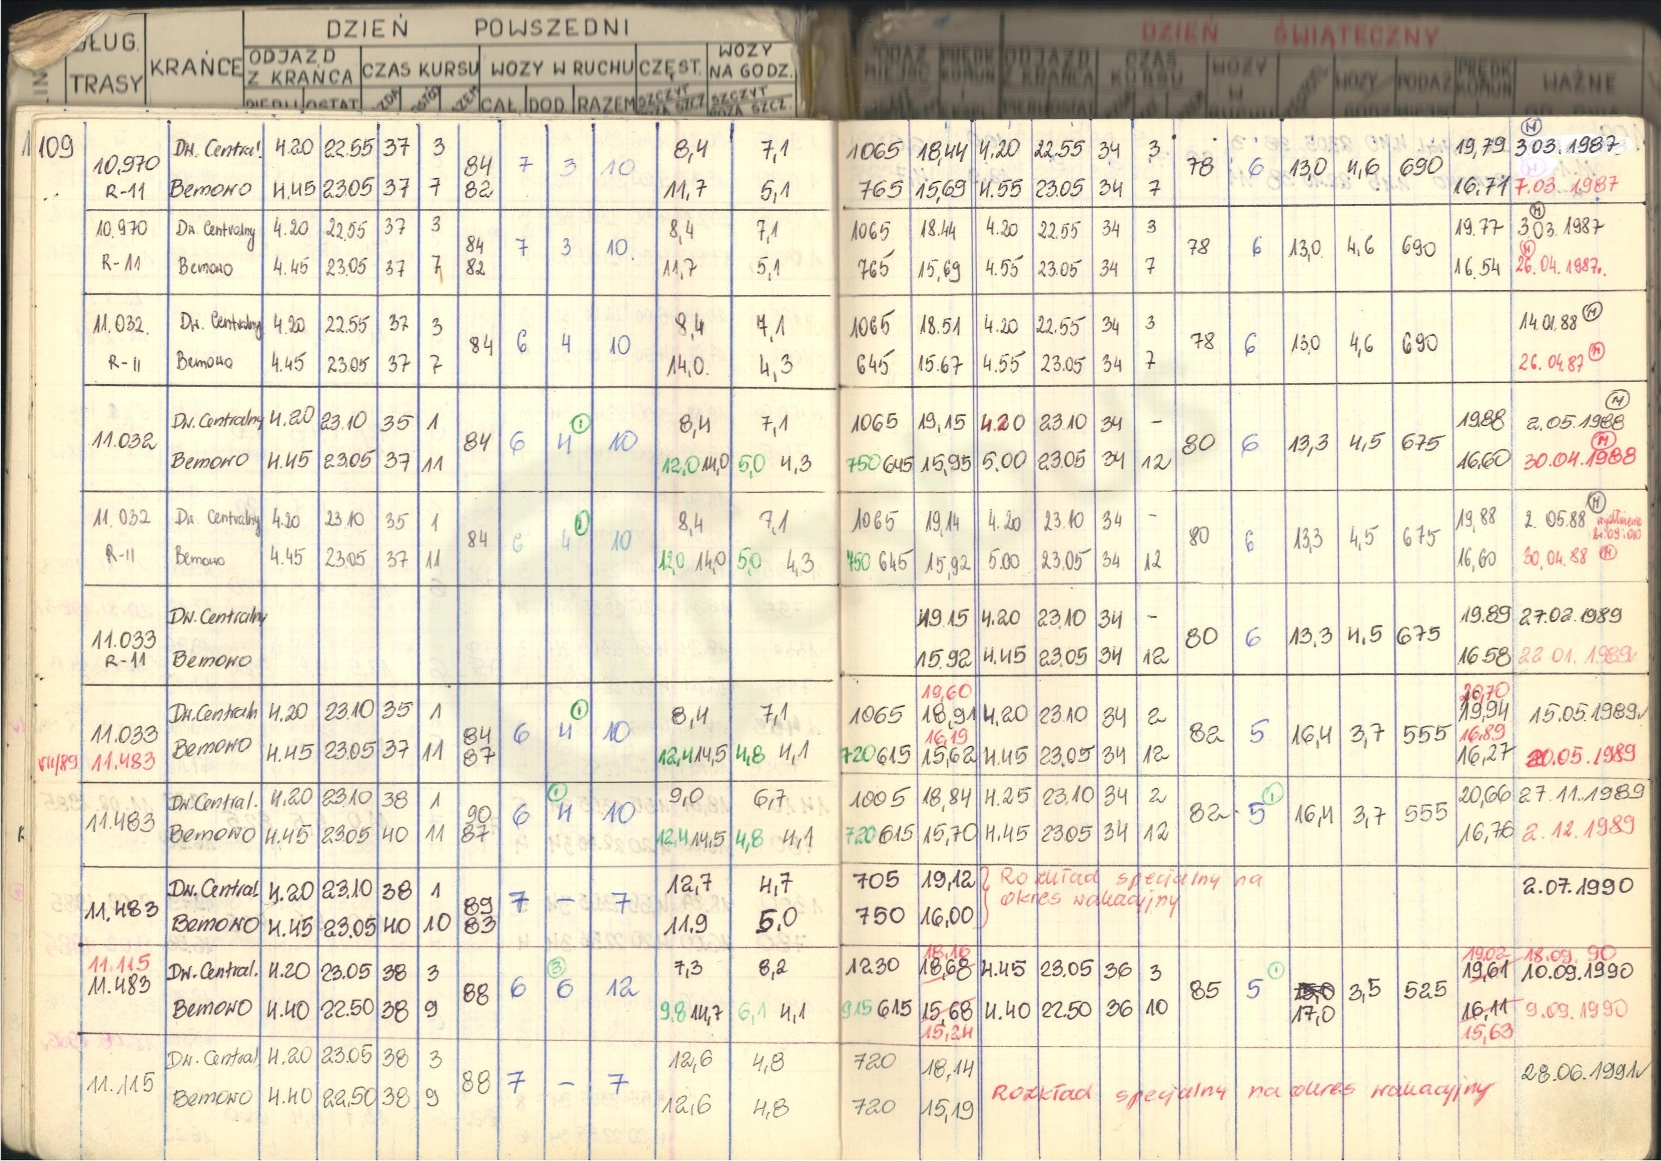 DZIEŃ POWSZEDNI DZIEŃ ŚWIĄTECZNY
DŁUG. TRASY KRAŃCE ODJAZD Z KRAŃCA CZAS KURSU WOZY W RUCHU CZĘST. WOZY NA GODZ.
CAŁ. DOD. RAZEM
PODAŻ MIEJSC PRĘDK KOMUN ODJAZD Z KRAŃCA CZAS KURSU WOZY W RUCHU WOZY GODZ PODAŻ PRĘDK KOMUN WAŻNE OD DNIA
109 Dw. Central. 4.20 22.55 37 3 8,4 7,1 1065 18,44 4.20 22.55 34 3 19,79 3 03. 1987
10,970 84 7 3 10 78 6 13,0 4,6 690
R-11 Bemowo 4.45 23.05 37 7 82 11,7 5,1 765 15,69 4.55 23.05 34 7 16.71 7.03. 1987
10.970 Dw. Centralny 4.20 22.55 37 3 8,4 7,1 1065 18.44 4.20 22.55 34 3 19.77 3 03. 1987
84 7 3 10. 78 6 13,0 4,6 690
R-11 Bemowo 4.45 23.05 37 7 82 11,7 5,1 765 15,69 4.55 23.05 34 7 16.54 26.04. 1987.
11.032. Dw. Centralny 4.20 22.55 37 3 8,4 7,1 1065 18.51 4.20 22.55 34 3 14.01.88 M
84 6 4 10 78 6 13,0 4,6 690
R-11 Bemowo 4.45 23.05 37 7 14,0. 4,3 645 15.67 4.55 23.05 34 7 26.04.87 M
M
Dw. Centralny 4.20 23.10 35 1 8,4 7,1 1065 19,15 4.20 23.10 34 - 19.88 2.05.1988
11.032 84 6 4 1 10 80 6 13,3 4,5 675 M
Bemowo 4.45 23.05 37 11 12,0 14,0 5,0 4,3 750 645 15,95 5.00 23.05 34 12 16,60 30.04.1988
11.032 Dw. Centralny 4.20 23.10 35 1 8,4 7,1 1065 19,14 4.20 23.10 34 - 19,88 2. 05.88 M
84 6 4 1 10 80 6 13,3 4,5 675
R-11 Bemowo 4.45 23.05 37 11 12,0 14,0 5,0 4,3 750 645 15,92 5.00 23.05 34 12 16,60 30.04.88 M
Dw. Centralny 19.15 4.20 23.10 34 - 19.89 27.02.1989
11.033 80 6 13,3 4,5 675
R-11 Bemowo 15.92 4.45 23.05 34 12 16.58 22 01. 1989
19,60 20,70
Dw. Centraln 4.20 23.10 35 1 8,4 7,1 1065 18,91 4.20 23.10 34 2 19,94 15.05.1989
11.033 84 6 4 1 10 16,19 82 5 16,4 3,7 555 16,89
VIII/89 11.483 Bemowo 4.45 23.05 37 11 87 12,4 14,5 4,8 4,1 720 615 15,62 4.45 23.05 34 12 16,27 20.05.1989
Dw. Central. 4.20 23.10 38 1 9,0 6,7 1005 18,84 4.25 23.10 34 2 20,66 27.11.1989
11.483 90 6 4 1 10 82 5 1 16,4 3,7 555
Bemowo 4.45 23.05 40 11 87 12,4 14,5 4,8 4,1 720 615 15,70 4.45 23.05 34 12 16,76 2. 12. 1989
Dw. Central. 4.20 23.10 38 1 12,7 4,7 705 19,12 Rozkład specjalny na 2.07.1990
11.483 89 7 - 7 okres wakacyjny
Bemowo 4.45 23.05 40 10 83 11.9 5,0 750 16,00
11.115 18,16 19,02 18.09. 90
11.483 Dw. Central. 4.20 23.05 38 3 7,3 8,2 1230 18,68 4.45 23.05 36 3 19,61 10.09.1990
88 6 6 3 12 85 5 1 3,5 525
Bemowo 4.40 22.50 38 9 9,8 14,7 6,1 4,1 915 615 15,68 4.40 22.50 36 10 17,0 16,11 9.09.1990
15,24 15,63
Dw. Central. 4.20 23.05 38 3 12,6 4,8 720 18,14 28.06.1991
11.115 88 7 - 7 Rozkład specjalny na okres wakacyjny
Bemowo 4.40 22.50 38 9 12,6 4,8 720 15,19